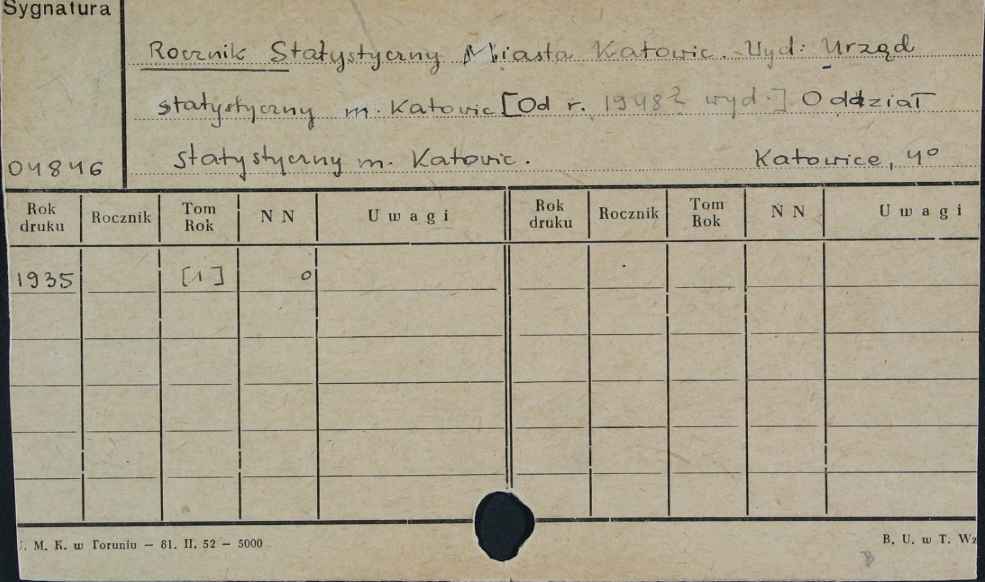 Sygnatura
Rocznik Statystyczny Miasta Katowic. Wyd: Urząd
statystyczny m. Katowic [Od r. 1948? wyd.] Oddział
04846 statystyczny m. Katowic. Katowice, 4°
Rok druku Rocznik Tom Rok N N Uwagi Rok druku Rocznik Tom Rok N N Uwagi
1935 [1] 0
. M. K. w Toruniu — 81. II. 52 — 5000 B. U. w T. Wz